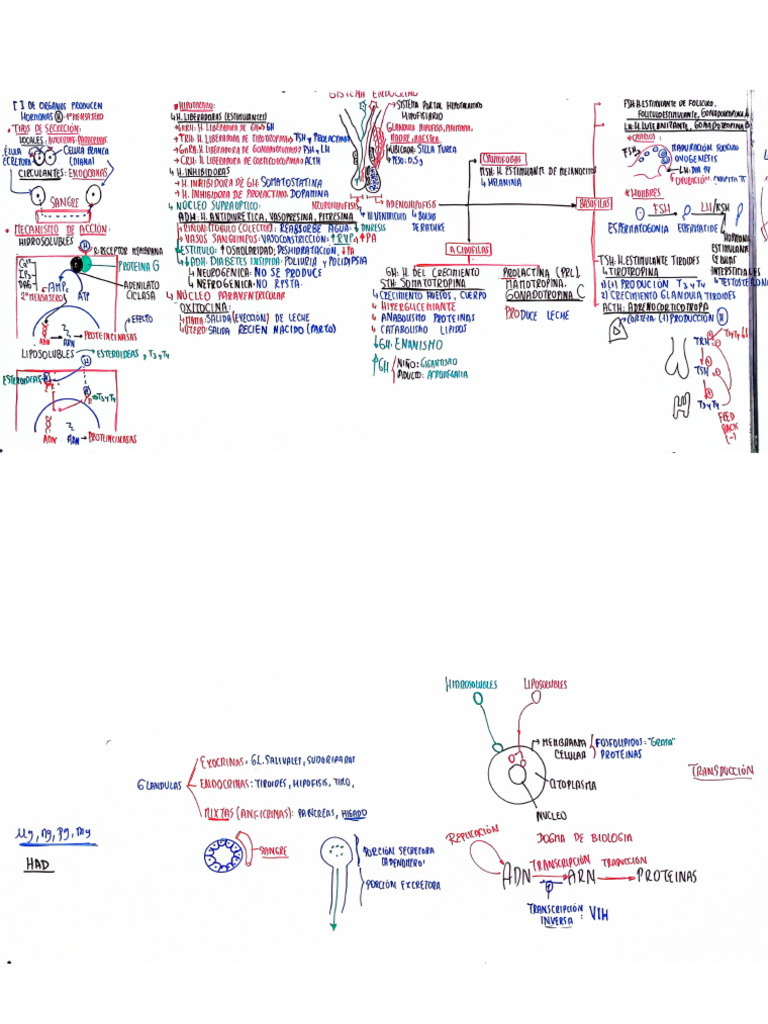 SISTEMA ENDOCRINO
[ ] DE ORGANOS PRODUCEN
HORMONAS (H) 1º MENSAJERO
• TIPOS DE SECRECIÓN:
LOCALES: AUTOCRINAS-PARACRINAS
CÉLULA ECRETORA
CÉLULA BLANCA (DIANA)
CIRCULANTES: ENDOCRINAS
SANGRE
• MECANISMO DE ACCIÓN:
HIDROSOLUBLES
H
R: RECEPTOR MEMBRANA
PROTEINA G
Ca+2
IP3
DAG
2º MENSAJERO
AMPc
ATP
ADENILATO CICLASA
EFECTO
ADN
ARN
PROTEINCINASAS
LIPOSOLUBLES → ESTEROIDEAS, T3 y T4
ESTEROIDEAS
H
T3 y T4
ADN
ARN
PROTEINCINASAS
• HIPOTALAMO:
↳ H. LIBERADORAS (ESTIMULANTES)
→ GHRH: H. LIBERADORA DE GH → GH
→ TRH: H. LIBERADORA DE TIROTROPINA → TSH y PROLACTINA
→ GnRH: H. LIBERADORA DE GONADOTROPINA → FSH y LH
→ CRH: H. LIBERADORA DE CORTICOTROPINA → ACTH
↳ H. INHIBIDORAS
↳ H. INHIBIDORA DE GH: SOMATOSTATINA
↳ H. INHIBIDORA DE PROLACTINA: DOPAMINA
↳ NÚCLEO SUPRAOPTICO:
ADH: H. ANTIDIURÉTICA, VASOPRESINA, PITRESINA
→ RIÑON (TÚBULO COLECTOR): REABSORBE AGUA: ↓ DIURESIS
→ VASOS SANGUINEOS: VASOCONSTRICCIÓN: ↑ RVP, ↑ PA
→ ESTIMULO: ↑ OSMOLARIDAD; DESHIDRATACIÓN, ↓ PA
→ ↓ ADH: DIABETES INSIPIDA: POLIURIA y POLIDIPSIA
↳ NEUROGENICA: NO SE PRODUCE
↳ NEFROGENICA: NO RPSTA.
↳ NÚCLEO PARAVENTRICULAR
OXITOCINA:
↳ MAMA: SALIDA (EYECCIÓN) DE LECHE
↳ UTERO: SALIDA RECIEN NACIDO (PARTO)
SISTEMA PORTAL HIPOTALAMO HIPOFISIARIO
GLANDULA HIPOFISIS, PITUITARIA, MADRE, MAESTRA
↳ UBICADA: SILLA TURCA
↳ PESO: 0.5 g
NEUROHIPOFISIS
ADENOHIPOFISIS
↳ III VENTRICULO
↳ BOLSAS DE RATHKE
CROMOFOGAS
MSH: H. ESTIMULANTE DE MELANOCITOS
↳ MELANINA
BASOFILAS
ACIDOFILAS
GH: H. DEL CRECIMIENTO
STH: SOMATOTROPINA
↳ CRECIMIENTO HUESOS, CUERPO
↳ HIPERGLICEMIANTE
↳ ANABOLISMO PROTEINAS
↳ CATABOLISMO LIPIDOS
↓ GH: ENANISMO
↑ GH
NIÑO: GIGANTISMO
ADULTO: ACROMEGALIA
PROLACTINA (PRL).
MAMOTROPINA.
GONADOTROPINA C
PRODUCE LECHE
FSH: H. ESTIMULANTE DE FOLICULO,
FOLICULOESTIMULANTE, GONADOTROPINA A
LH: H. LUTEINIZANTE, GONADOTROPINA B
FSH
MADURACIÓN FOLICULO
OVOGENESIS
→ LH: DIA 14
OVULACIÓN:
* HOMBRES
FSH
LH/ICSH
ESPERMATOGONIA
ESPERMATIDE
HORMONA
ESTIMULANA
CELULAS
INTERSTICIALES
↳ TESTOSTERONA
TSH: H. ESTIMULANTE TIROIDES
↳ TIROTROPINA
1) (+) PRODUCCIÓN T3 y T4
2) CRECIMIENTO GLANDULA TIROIDES
ACTH: ADRENOCORTICOTROPA
CORTEZA: (+) PRODUCCIÓN (H)
TRH
TSH
T3 y T4
FEED BACK (-)
HIDROSOLUBLES
LIPOSOLUBLES
MEMBRANA CELULAR
FOSFOLIPIDOS: "GRASA"
PROTEINAS
CITOPLASMA
NUCLEO
TRANSDUCCIÓN
GLANDULAS
EXOCRINAS: GL. SALIVALES, SUDORIPARAS
ENDOCRINAS: TIROIDES, HIPOFISIS, TIMO,
MIXTAS (ANFICRINAS): PANCREAS, HIGADO
Ug, ng, pg, mg
HAD
SANGRE
PORCIÓN SECRETORA
(ADENOMERO)
PORCIÓN EXCRETORA
DOGMA DE BIOLOGIA
REPLICACIÓN
TRANSCRIPCIÓN
TRADUCCIÓN
ADN → ARN → PROTEINAS
TRANSCRIPCIÓN INVERSA: VIH